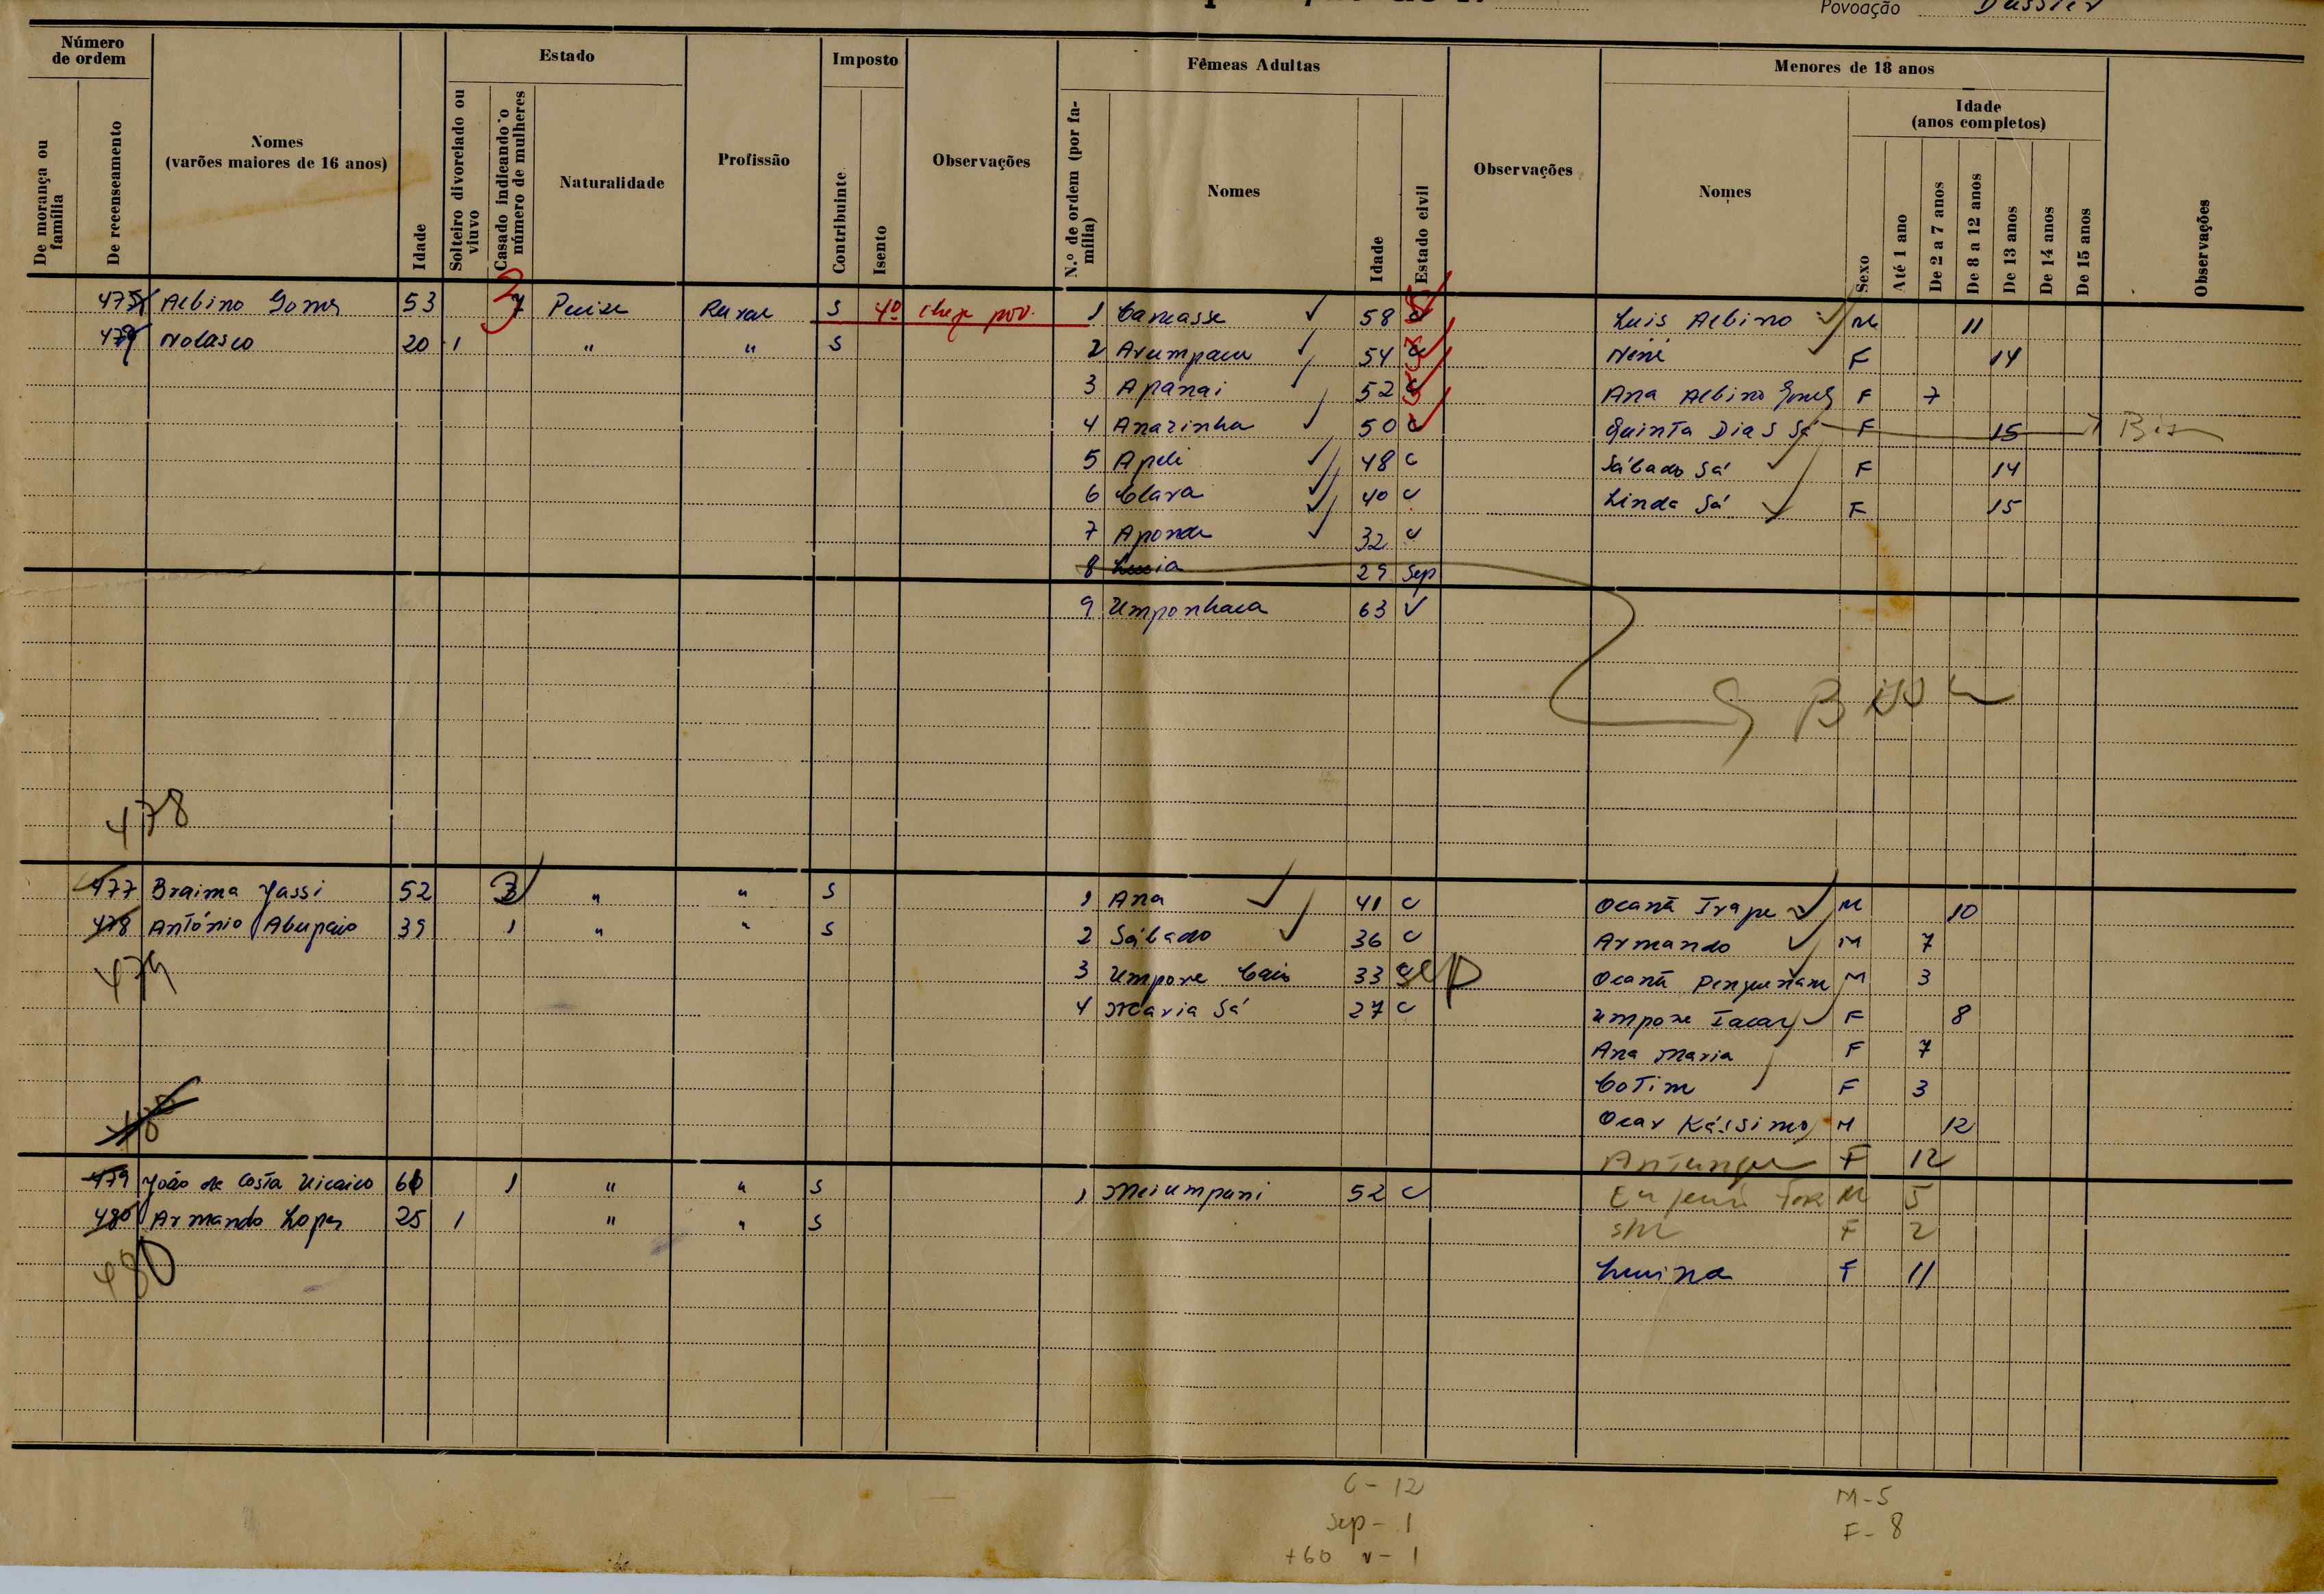 Povoação Dussier
Número de ordem
De morança ou família
De recenseamento
Nomes (varões maiores de 16 anos)
Idade
Estado
Solteiro divorciado ou viuvo
Casado indicando o número de mulheres
Naturalidade
Profissão
Imposto
Contribuinte
Isento
Observações
Fêmeas Adultas
N.º de ordem (por família)
Nomes
Idade
Estado civil
Observações
Menores de 18 anos
Nomes
Sexo
Idade (anos completos)
Até 1 ano
De 2 a 7 anos
De 8 a 12 anos
De 13 anos
De 14 anos
De 15 anos
Observações
Albino Gomes 53 7 Rural S 40 chefe pov. 1 Camasse 58 c Luis Albino M 11
Nolasco 20 1 " " S 2 54 c Nené F 14
3 Apánai 52 c Ana Albino Gomes F 7
4 Anazinha 50 c Quinta Dias Sá F 15
5 Apeli 48 c Sábado Sá F 14
6 Clara 40 c Linda Sá F 15
7 Aponde 32 c
8 29 Sep
9 Umponhaca 63 V
478
477 Braima Jassi 52 3 " " S 1 Ana 41 c M 10
478 António 39 1 " " S 2 Sábado 36 c Armando M 7
479 3 Umpone Caio 33 Sep M 3
4 Maria Sá 27 c F 8
Ana Maria F 7
Cotim F 3
Ocar Kássimo M 12
F 12
479 João da Costa 1 " " S 1 Meiumpani 52 c M 5
480 Armando Lopes 25 1 " " S F 2
480 F 11
C - 12
Sep - 1
+60 v - 1
M - 5
F - 8